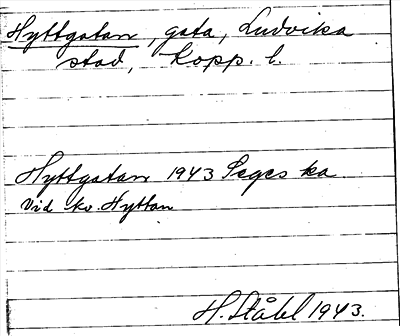 Hyttgatan, gata, Ludvika
stad, Kopp. l.
Hyttgatan 1943 Seges ka
Vid kv. Hyttan
H. Ståhl 1943.